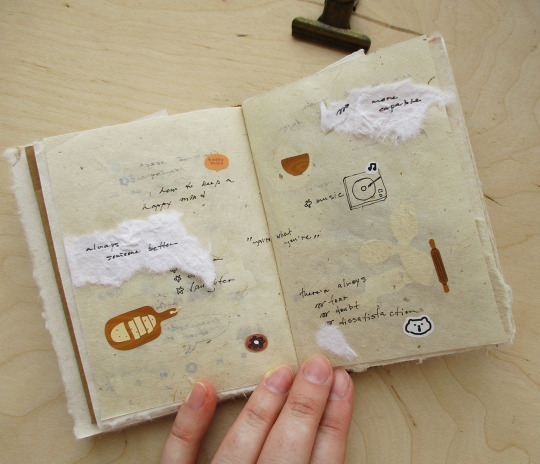 how to keep a
happy mind
always
someone better
laughter
more
capable
music
"you're what
you're"
there's always
fear
doubt
dissatisfaction